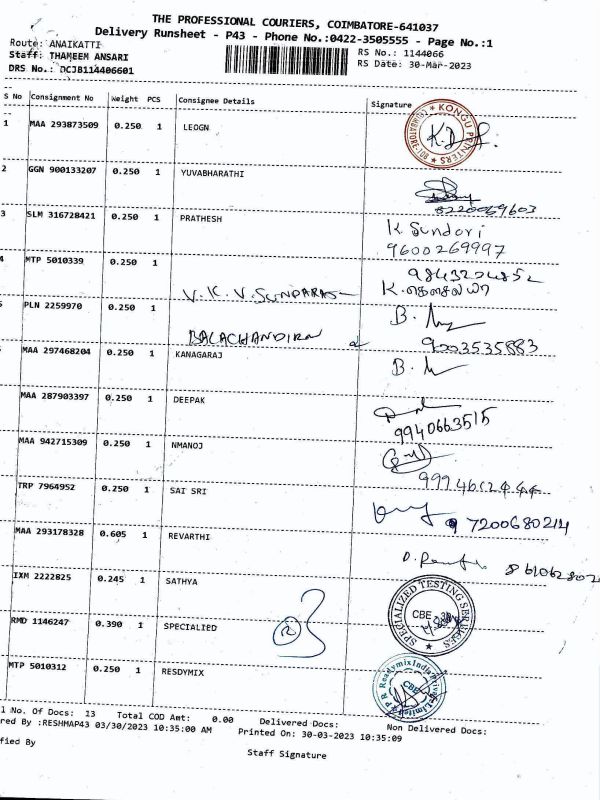 THE PROFESSIONAL COURIERS, COIMBATORE-641037
Delivery Runsheet - P43 - Phone No.:0422-3505555 - Page No.:1
Route: ANAIKATTI
RS No.: 1144066
Staff: THAMEEM ANSARI
RS Date: 30-Mar-2023
DRS No.: DCJB114406601
S No Consignment No Weight PCS Consignee Details Signature
1 MAA 293873509 0.250 1 LEOGN
KONGU PRINTERS
2 GGN 900133207 0.250 1 YUVABHARATHI
8220069603
3 SLM 316728421 0.250 1 PRATHESH
K. Sundori
9600269997
MTP 5010339 0.250 1
V. K. V. SUNDARAS
PLN 2259970 0.250 1
B.
BALACHANDIRN
9003535883
MAA 297468204 0.250 1 KANAGARAJ
B.
MAA 287903397 0.250 1 DEEPAK
9940663515
MAA 942715309 0.250 1 NMANOJ
TRP 7964952 0.250 1 SAI SRI
7200680214
MAA 293178328 0.605 1 REVARTHI
IXM 2222825 0.245 1 SATHYA
SPECIALIZED TESTING SERVICES
RMD 1146247 0.390 1 SPECIALIED
MTP 5010312 0.250 1 RESDYMIX
CBE
l No. Of Docs: 13 Total COD Amt: 0.00 Delivered Docs: Non Delivered Docs:
red By :RESHMAP43 03/30/2023 10:35:00 AM Printed On: 30-03-2023 10:35:09
fied By
Staff Signature